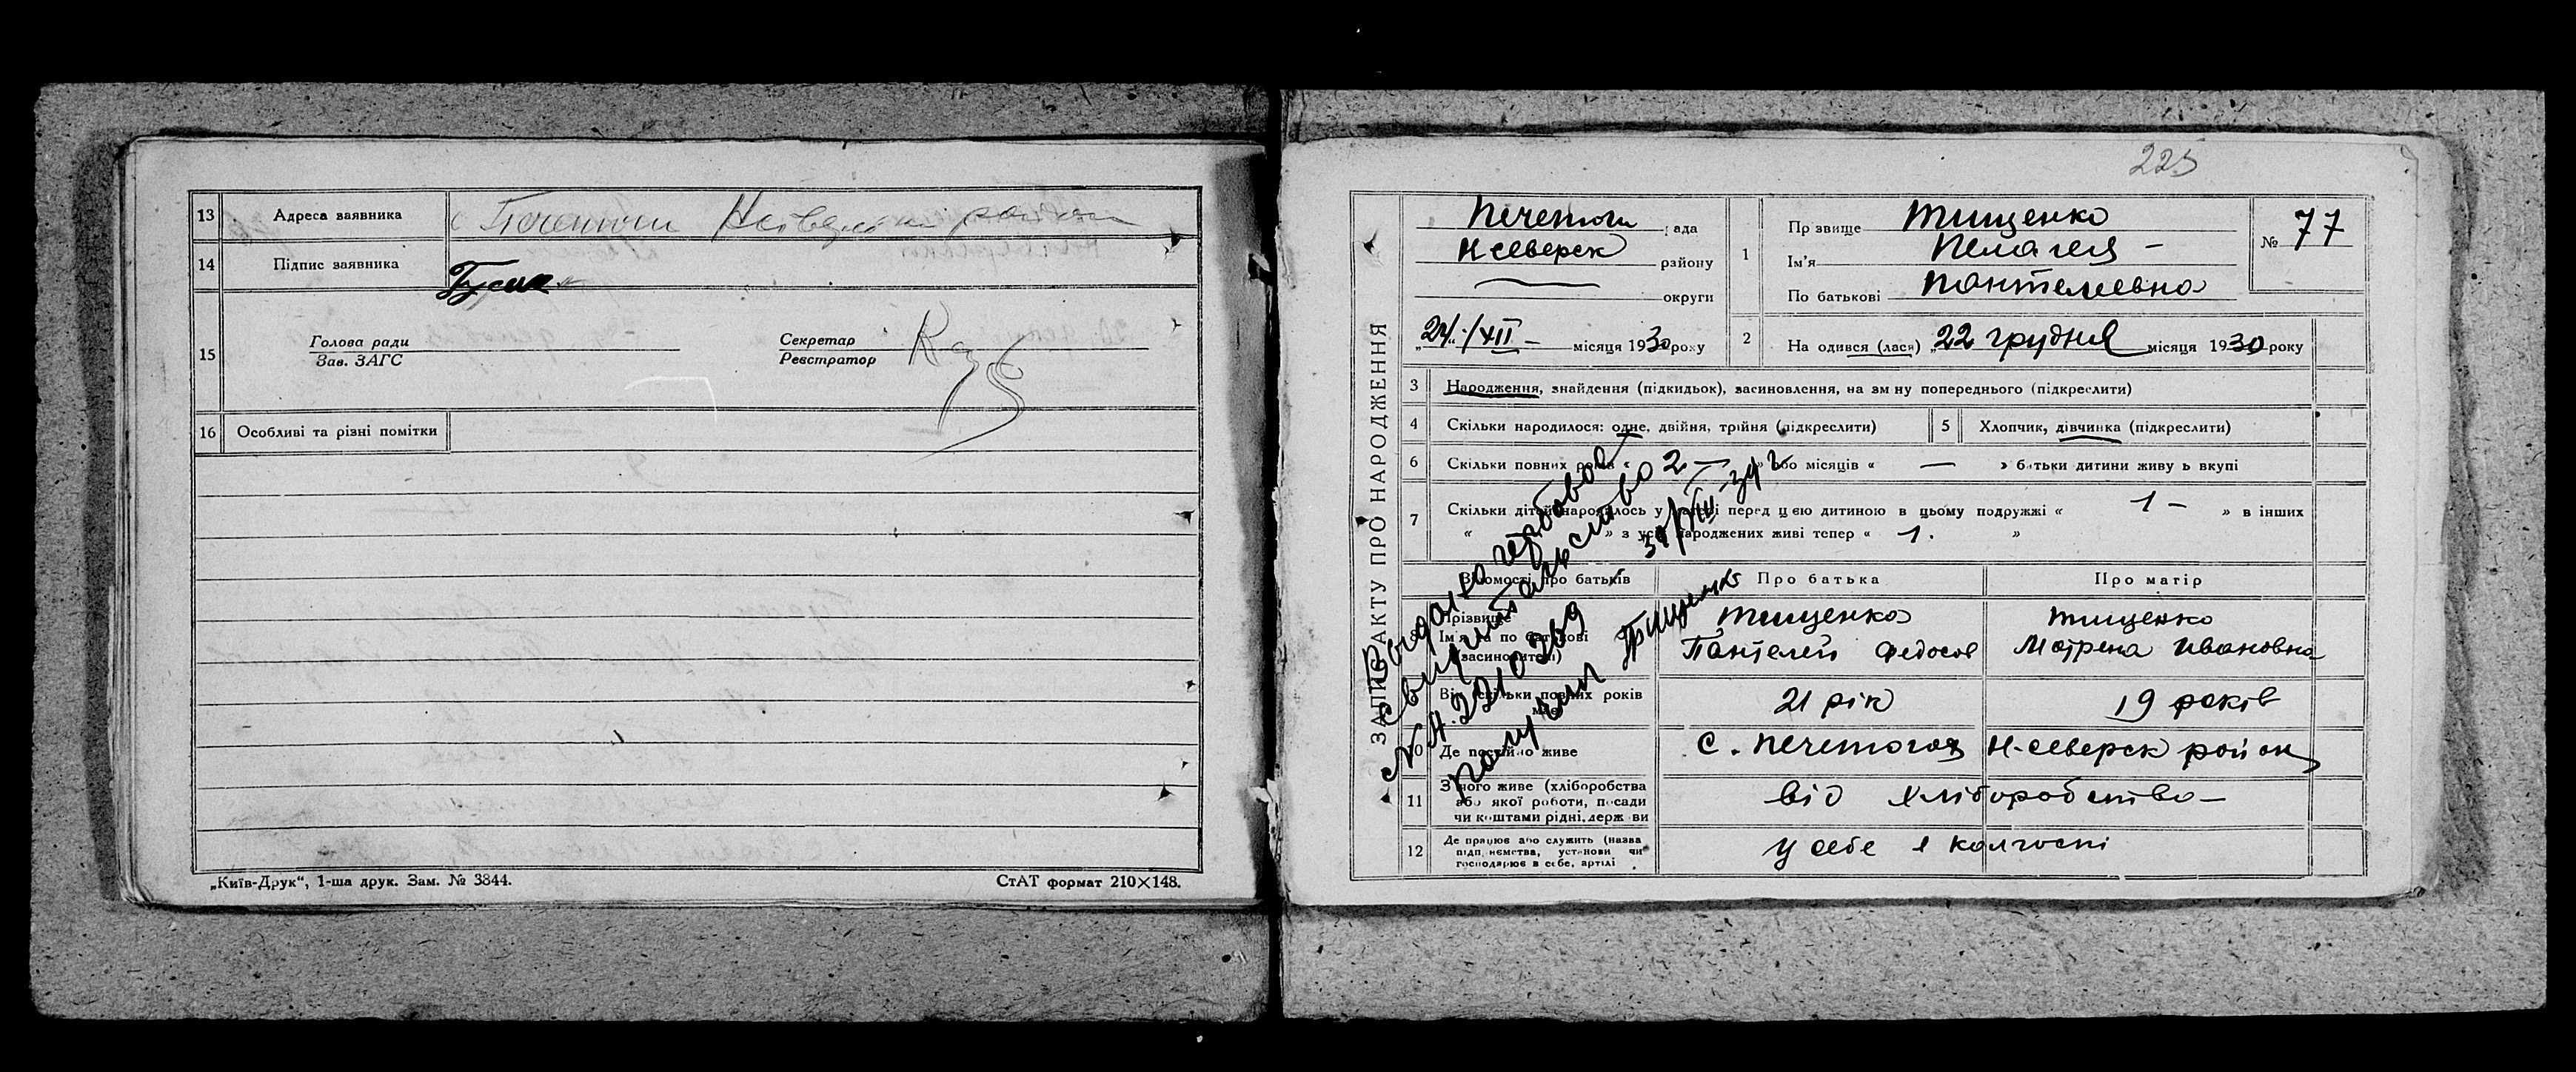 13 Адреса заявника
14 Підпис заявника
15 Голова ради
Зав. ЗАГС
Секретар
Реєстратор
16 Особливі та різні помітки
„Київ-Друк“, 1-ша друк. Зам. № 3844.
СтАТ формат 210×148.
225
ЗАПИС АКТУ ПРО НАРОДЖЕННЯ
рада
Н Северск району
округи
„24“ /XII – місяця 1930 року
1 Прізвище Тищенко
Ім'я Пелагея –
По батькові Пантелеевна
№ 77
2 На одився (лася) „22 грудня місяця 1930 року
3 Народження, знайдення (підкидьок), засиновлення, на зм ну попереднього (підкреслити)
4 Скільки народилося: одне, двійня, трійня (підкреслити)
5 Хлопчик, дівчинка (підкреслити)
6 Скільки повних років « 2 – » або місяців « — » батьки дитини живу ь вкупі
7 Скільки дітей народилось у матері перед цією дитиною в цьому подружжі « 1 – » в інших
« » з усіх народжених живі тепер « 1. »
Відомості про батьків
Про батька
Про матір
8 Прізвище
Ім'я та по батькові
(засиновителі)
Тищенко
Пантелей Федосов
Тищенко
Мотрена Ивановна
Вік, скільки повних років має
21 рік
19 років
10 Де постійно живе
Н-Северск район
11 З чого живе (хліборобства
або якої роботи, посади
чи коштами рідні, держ ви
від хліборобства –
12 Де працює або служить (назва
підп иємства, установи чи
господарює в себе, артілі
у себе в колгоспі
Выдано гербовое
свидительство
№ А. 2210269
Получил Тищенко